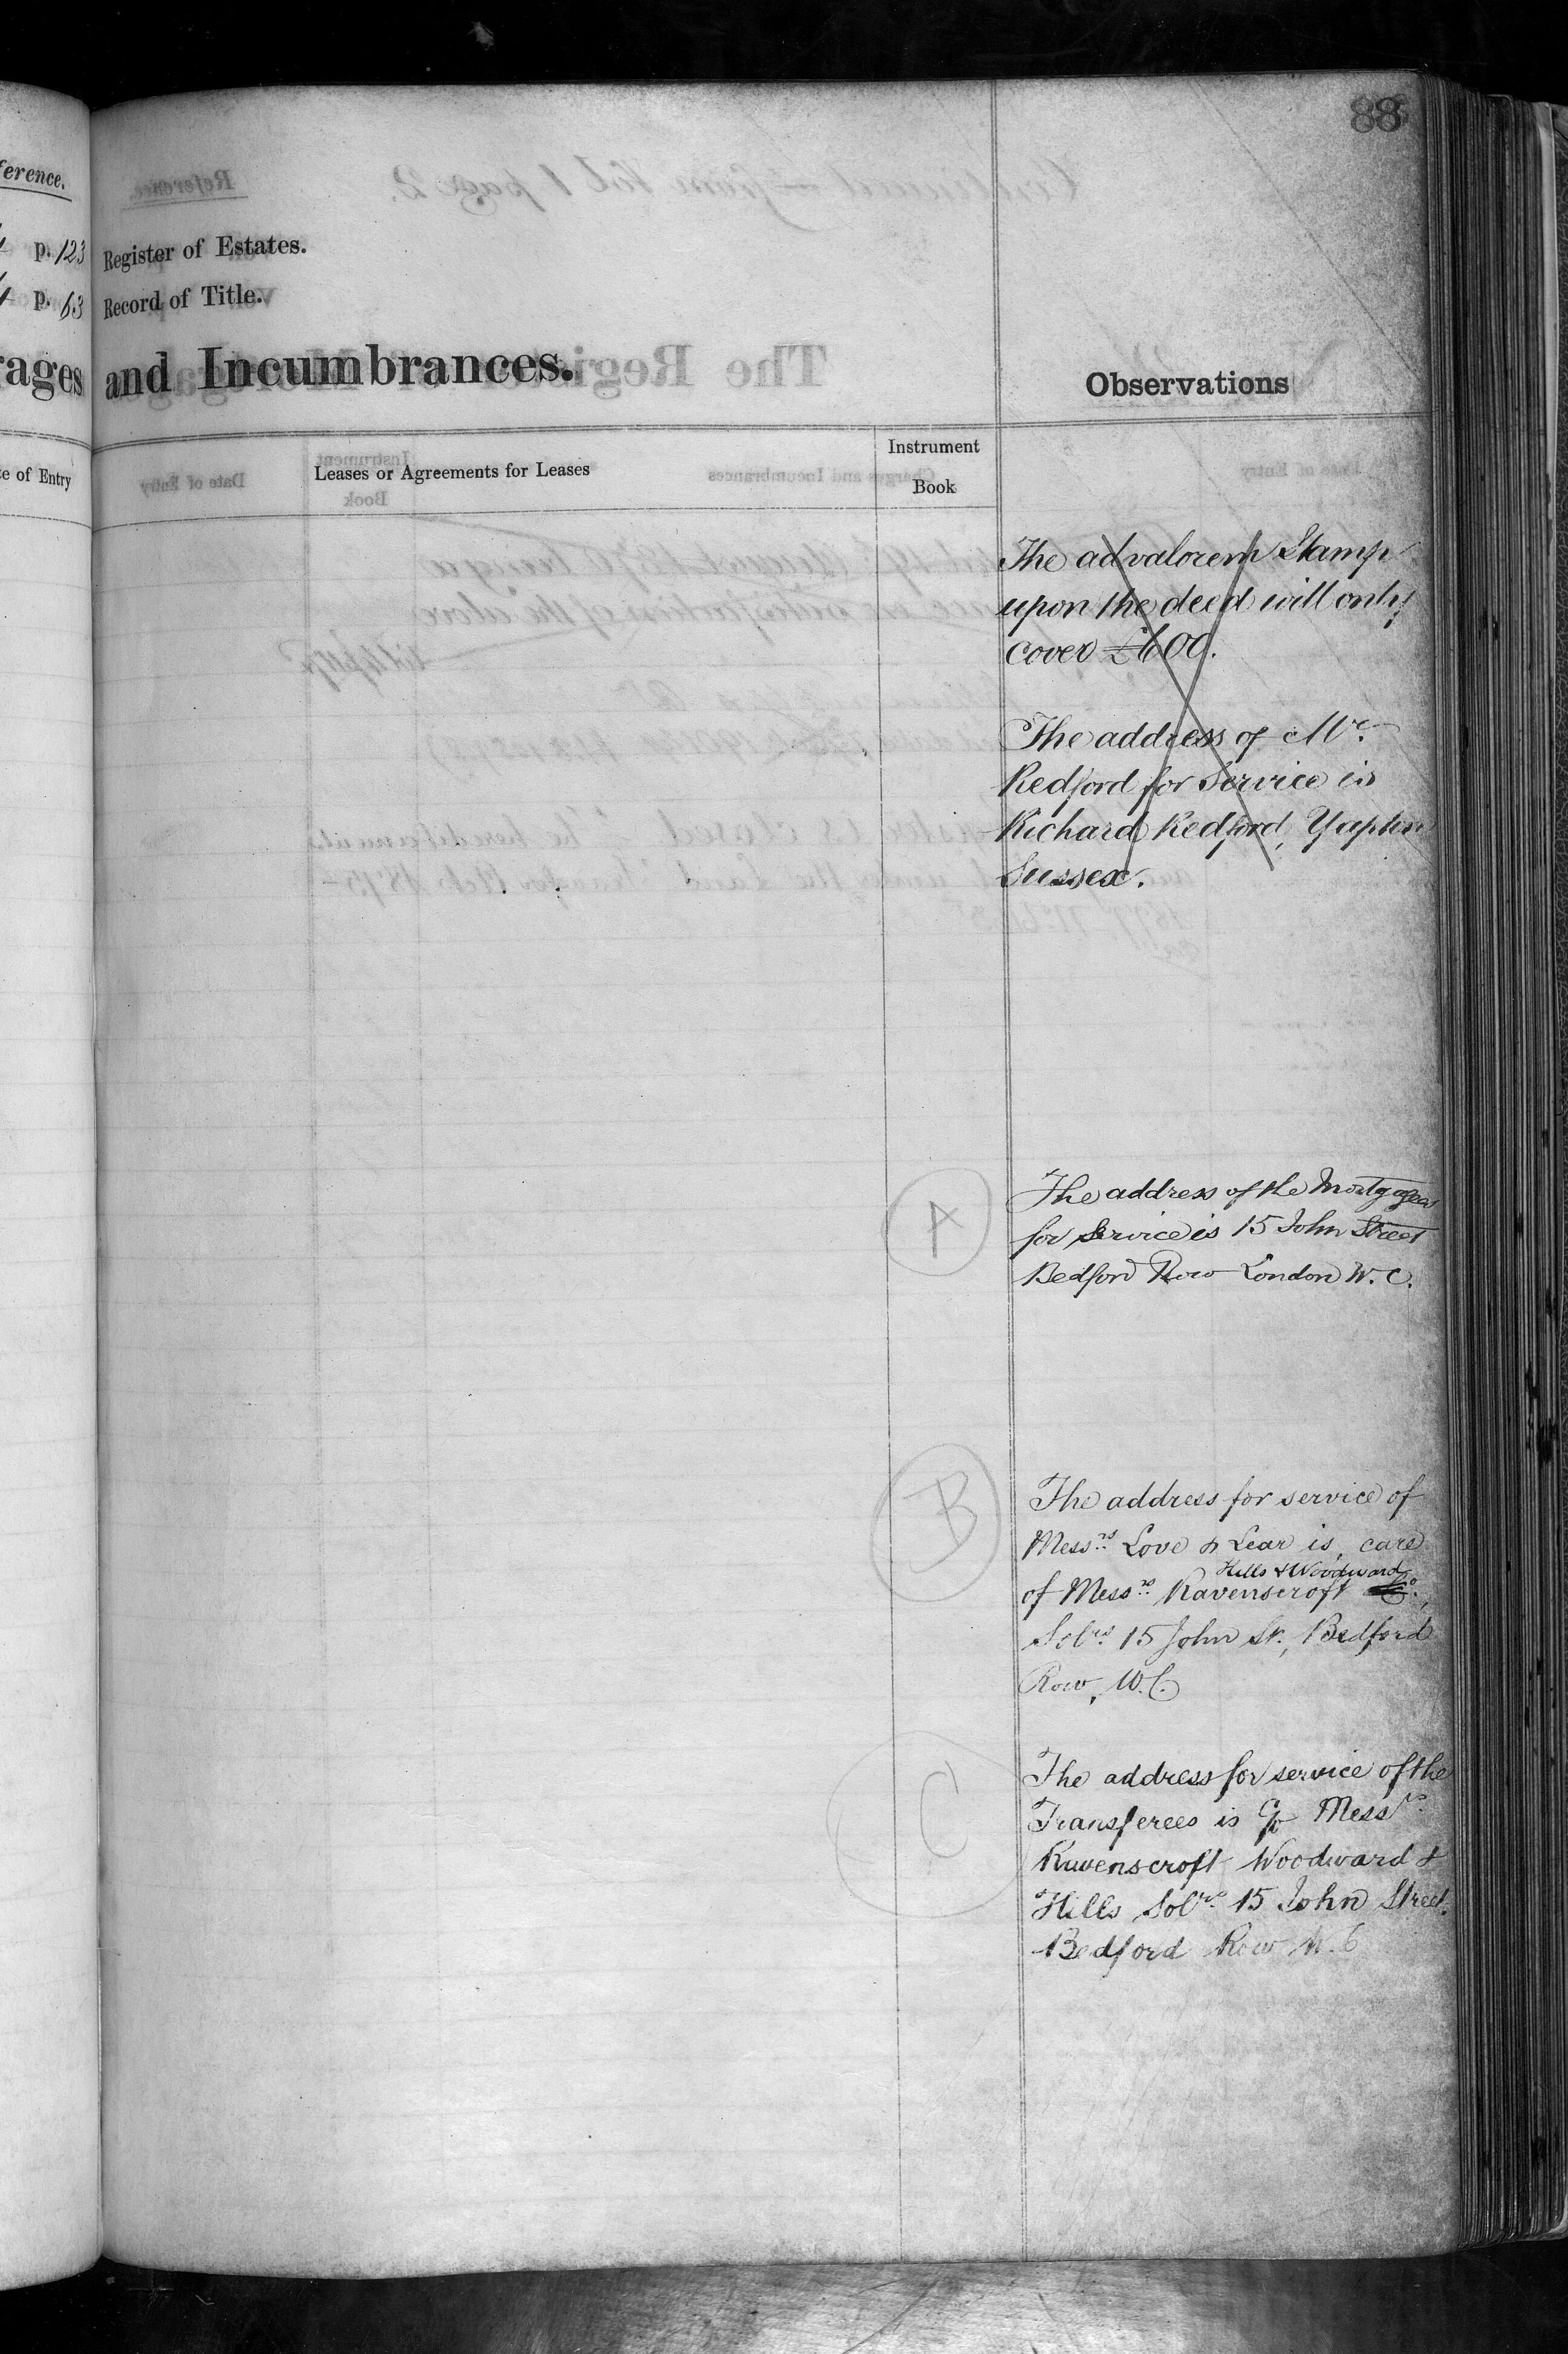 88
ference.
p. 123
Register of Estates.
p. 63
Record of Title.
rages and Incumbrances.
Observations
te of Entry
Leases or Agreements for Leases
Instrument
Book
The ad valorem Stamp
upon the deed will only
cover £600.
The address of Mr.
Redford for Service is
Richard Redford, Yapton
Sussex.
A
The address of the Mortgagees
for Service is 15 John Street
Bedford Row London W.C.
B
The address for service of
Messrs. Love & Lear is, care
Hills & Woodward
of Messrs. Ravenscroft
Solrs. 15 John St., Bedford
Row, W.C.
C
The address for service of the
Transferees is c/o Messrs.
Ravenscroft Woodward &
Hills Solrs. 15 John Street.
Bedford Row W.C